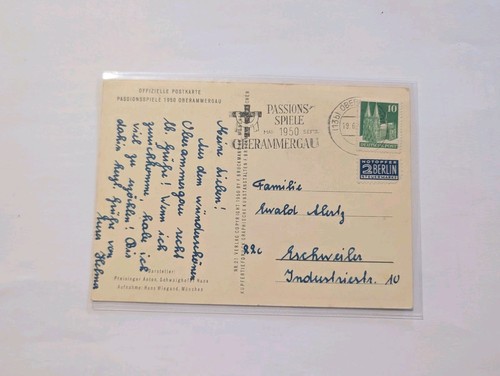 OFFIZIELLE POSTKARTE
PASSIONSSPIELE 1950 OBERAMMERGAU
Meine Lieben!
Aus dem wunderschönen
Oberammergau recht
lb. Grüße! Wenn ich
zurückkomme, habe ich
viel zu erzählen! Bis
dahin herzl. Grüße von
Eurer Helma
Hersteller:
Aufnahme: Hans Wiegand, München
PASSIONS
SPIELE
1950
OBERAMMERGAU
(13b) OBER
10
DEUTSCHE POST
NOTOPFER
2 BERLIN
STEUERMARKE
Familie
Ewald Mertz
22c Eschweiler
Industriestr. 10